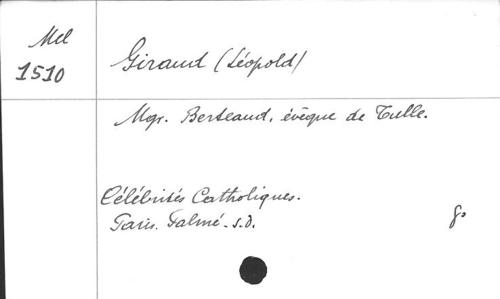 Mel
1510
Giraud (Léopold)
Mgr. Berteaud, évêque de Tulle.
Célébrités Catholiques.
Paris. Palmé. s.d. 8º